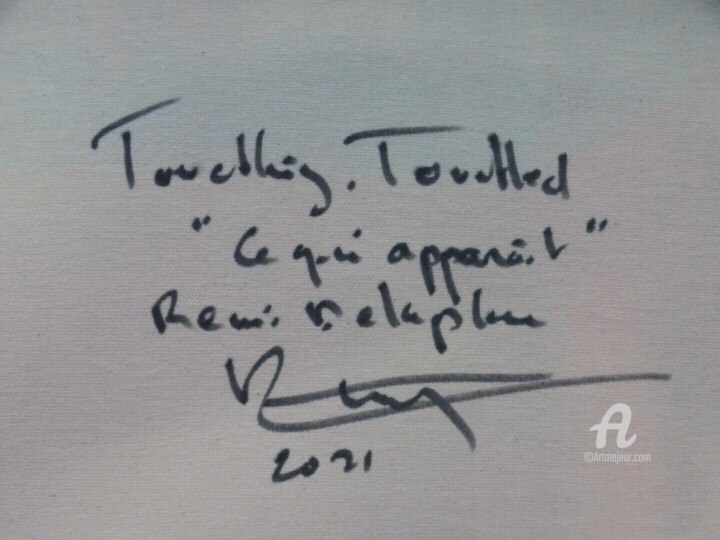 Touching. Touched
"Ce qui apparaît"
Remi Delaplace
2021
A
©Artmajeur.com